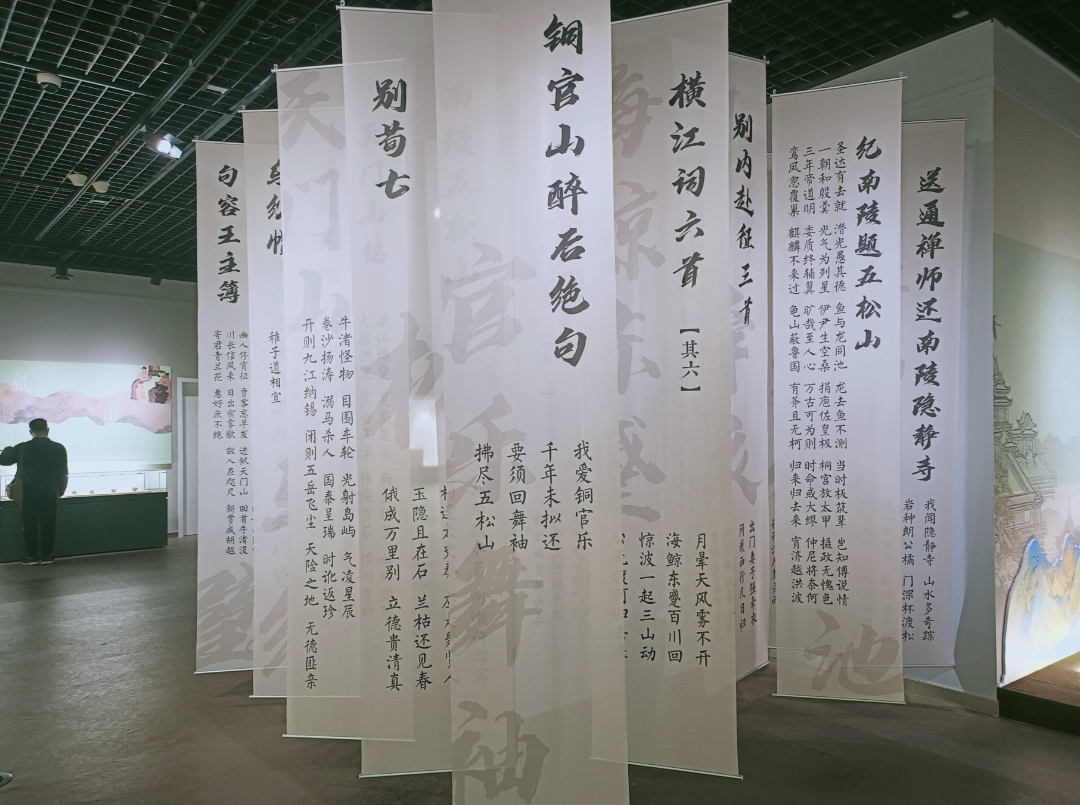 送通禅师还南陵隐静寺
我闻隐静寺 山水多奇踪
岩种朗公橘 门深杯渡松
纪南陵题五松山
圣达有去就 潜光愚其德 鱼与龙同池 龙去鱼不测 当时板筑辈 岂知傅说情
一朝和殷羹 光气为列星 伊尹生空桑 捐庖佐皇极 桐宫放太甲 摄政无愧色
三年帝道明 委质终辅翼 旷哉至人心 万古可为则 时命或大缪 仲尼将奈何
鸾凤忽覆巢 麒麟不来过 龟山蔽鲁国 有斧且无柯 归来归去来 宵济越洪波
池
别内赴征 三首
出门妻子强牵衣
问我西行几日归
横江词六首
【其六】
月晕天风雾不开
海鲸东蹙百川回
惊波一起三山动
铜官山醉后绝句
我爱铜官乐
千年未拟还
要须回舞袖
拂尽五松山
官
舞
袖
别荀七
玉隐且在石 兰枯还见春
俄成万里别 立德贵清真
天门
牛渚怪物 目围车轮 光射岛屿 气凌星辰
卷沙扬涛 溺马杀人 国泰呈瑞 时讹返珍
开则九江纳锡 闭则五岳飞尘 天险之地 无德匪亲
稚子道相宜
句容王主簿
幽人停宵征 贾客忘早发 进帆天门山 回首牛渚没
川长信风来 日出宿雾歇 故人在咫尺 新赏成胡越
寄君青兰花 惠好庶不绝